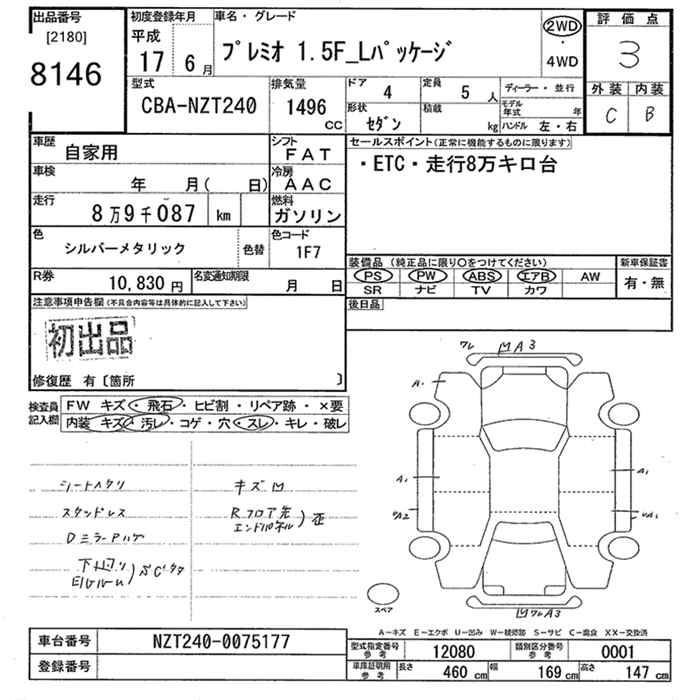 出品番号
[2180]
8146
初度登録年月
平成
17 6月
車名・グレード
プレミオ 1.5F_Lパッケージ
2WD
・
4WD
評価点
3
外装 内装
C B
型式
CBA-NZT240
排気量
1496
CC
ドア 4
定員 5 人
形状 セダン
積載 kg
ディーラー・並行
モデル年式 年
ハンドル 左・右
車歴 自家用
シフト FAT
車検 年 月( 日)
冷房 AAC
走行 8万9千087 km
燃料 ガソリン
色 シルバーメタリック 色替
色コード 1F7
R券 10,830円
名変通知期限 月 日
セールスポイント(正常に機能するものに限ります)
・ETC・走行8万キロ台
装備品 (純正品に限り○をつけてください)
PS PW ABS エアB AW
SR ナビ TV カワ
新車保証書
有・無
後日品
注意事項申告欄(不具合内容等は具体的に記入して下さい)
初出品
修復歴 有〔箇所 〕
検査員記入欄
FW キズ・飛石・ヒビ割・リペア跡・×要
内装 キズ・汚レ・コゲ・穴・スレ・キレ・破レ
シートヘタリ
スタッドレス
Dミラー
キズ
Rフロア先
エンドパネル)歪
ワレ A3
A・
A1
A2
A1
A1
ワレA3
スペア
A-キズ E-エクボ U-凹み W-補修跡 S-サビ C-腐食 XX-交換済
車台番号 NZT240-0075177
登録番号
型式指定番号 参考 12080
類別区分番号 参考 0001
車庫証明用 参考
長さ 460 cm
幅 169 cm
高さ 147 cm